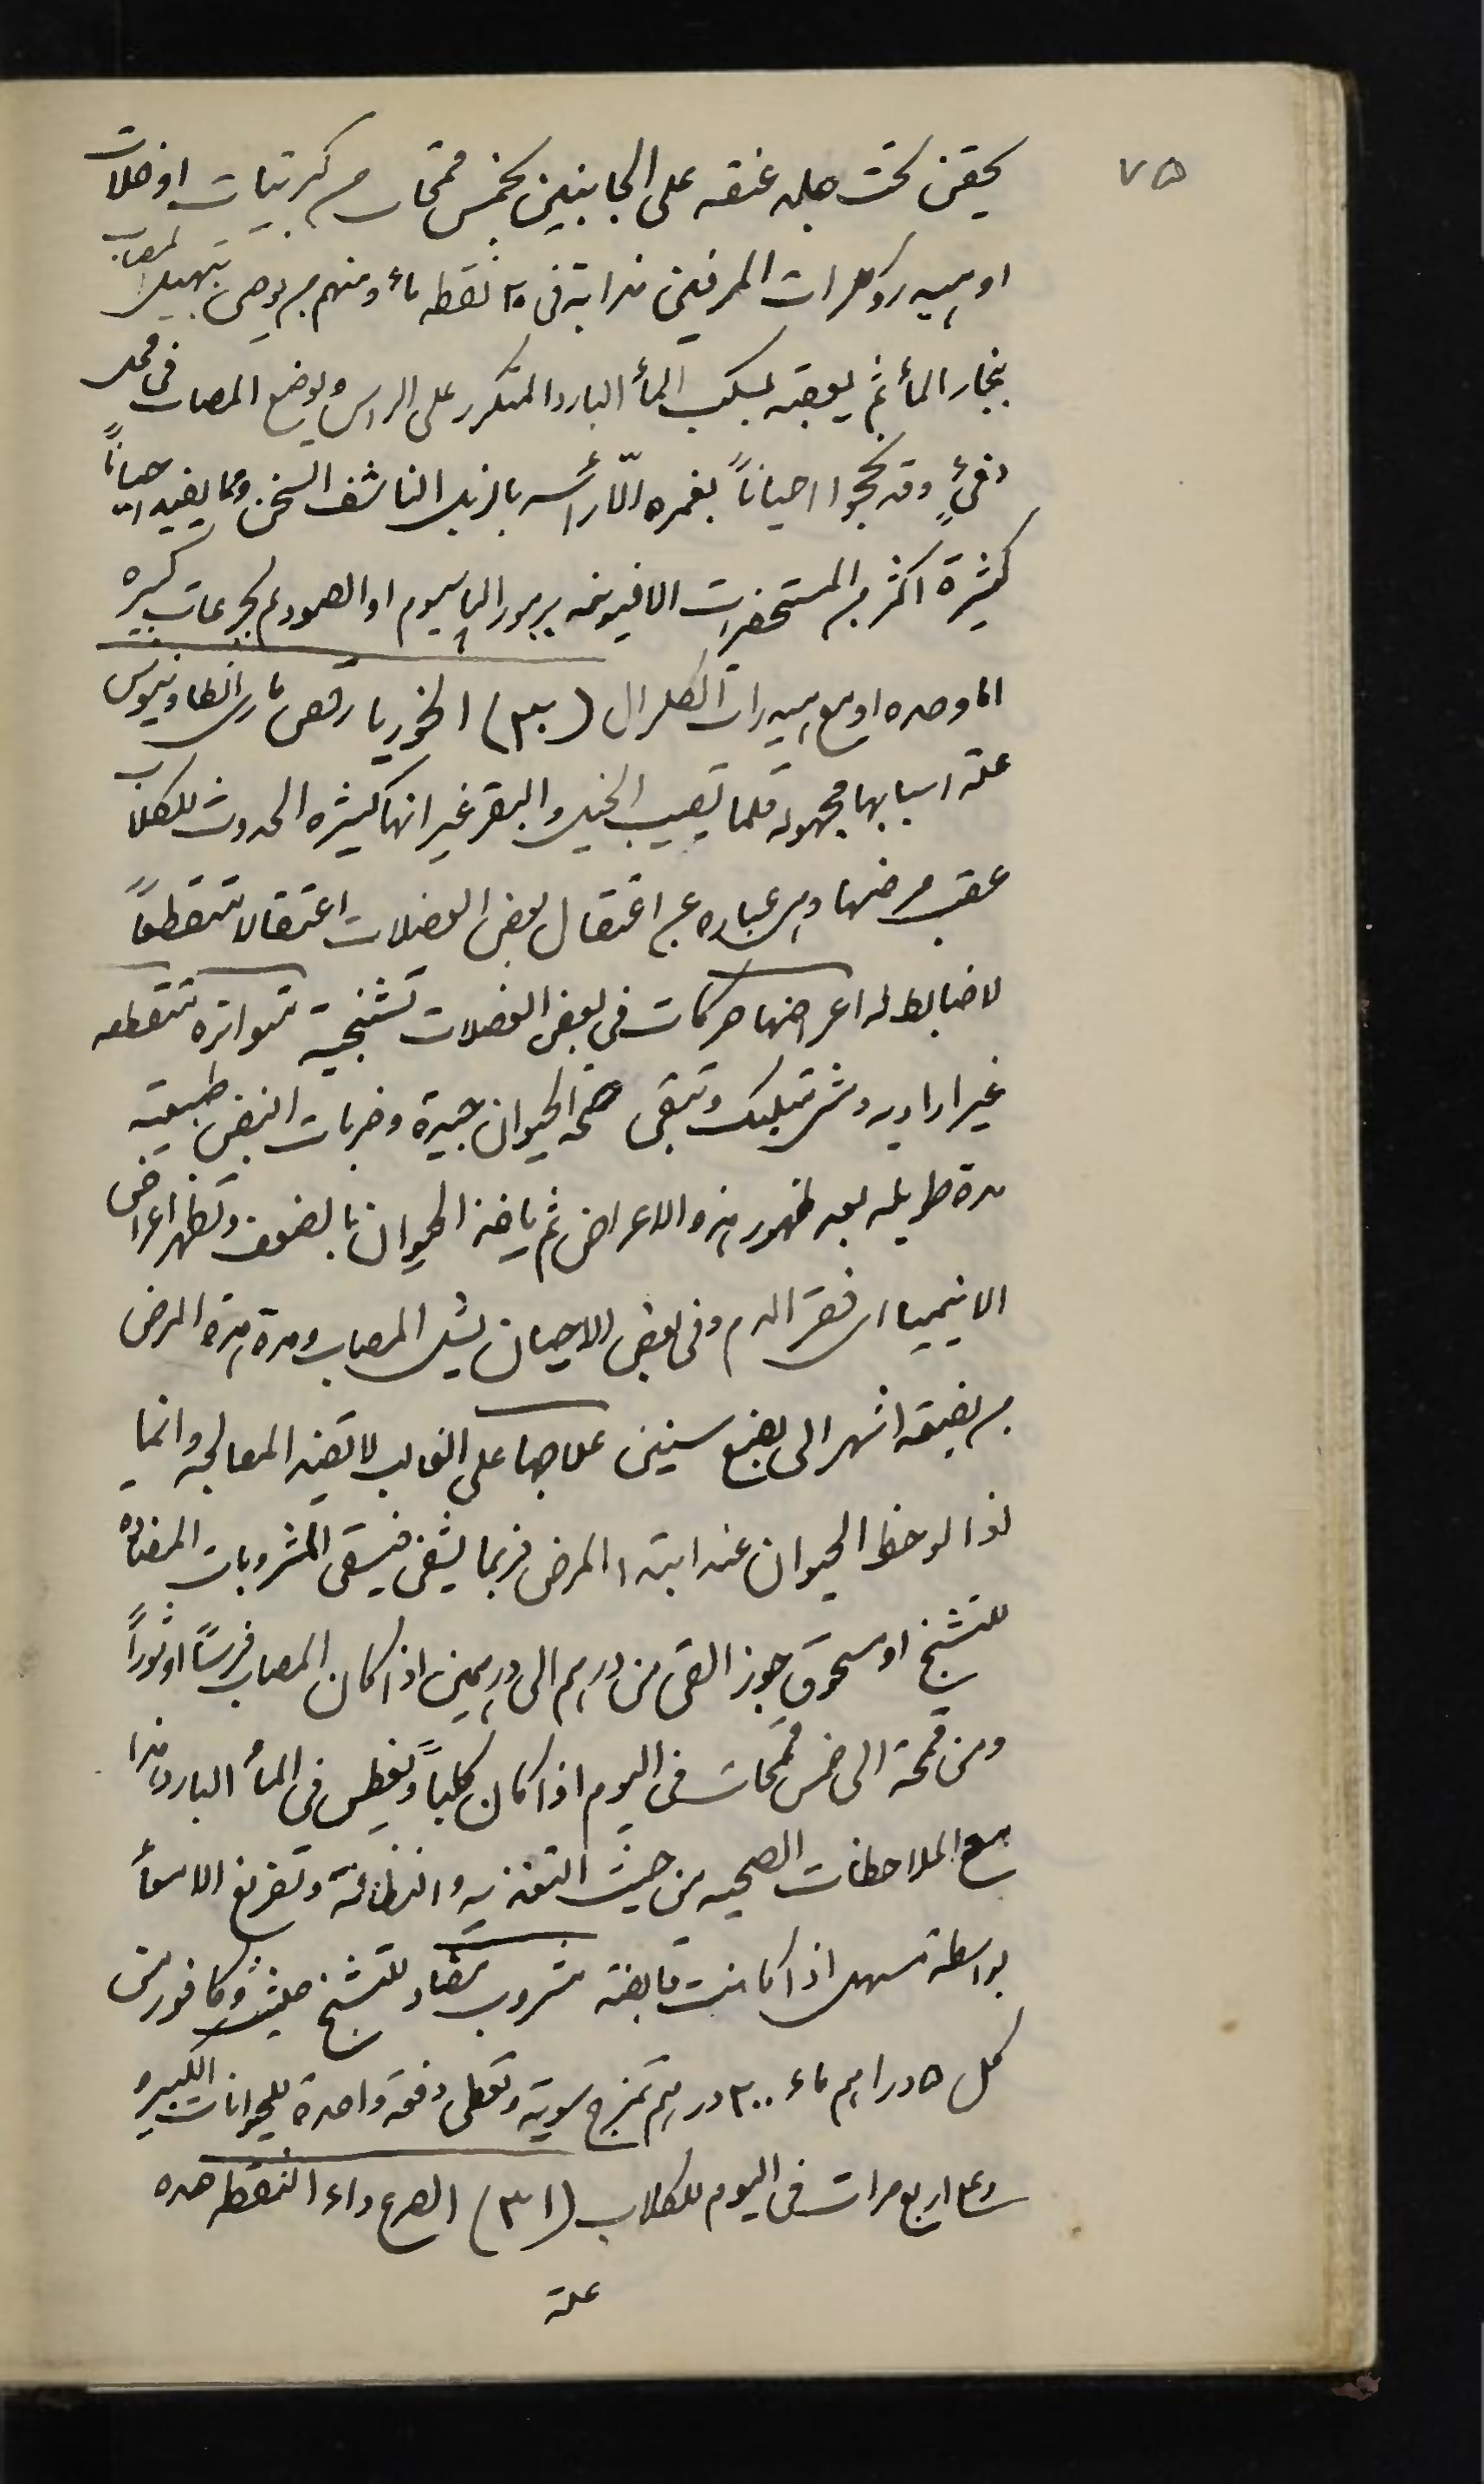 ٧٥
يحقن تحت جلد عنقه على الجانبين بخمس قمحات من كبريتات او خلات
او هيدروكلرات المرفين مذابة فى ٢٥ نقطه ماء ومنهم من يوصى بتهبيل المصاب
ببخار الماء ثم يعقبه بسكب الماء البارد المتكرر على الراس ويوضع المصاب فى محل
دفئٍ وقد نجحوا احياناً بغمره الّا راسه بالزبل الناشف السخن ومما يفيد احياناً
كثيرة اكثر من المستحضرات الافيونيه برمور الپاسيوم او الصوديم لجرعات كبيره
اما وحده او مع هيدرات الكلرال (٣٠) الخوريا رقص مارى انطاونيوس
علة اسبابها مجهوله قلما تصيب الخيل والبقر غير انها كثيره الحدوث للكلاب
عقب مرضها وهى عباره عن اعتقال بعض العضلات اعتقالا متقطعاً
لا ضابط له اعراضها حركات فى بعض العضلات تشنجية متواتره متقطعه
غير اراديه وشرتبلبك وتبقى صحة الحيوان جيدة وضربات النبض طبيعيه
مدة طويله بعد ظهور هذه الاعراض ثم ياخذ الحيوان بالضعف وتظهر اعراض
الانيميا اى فقر الدم وفى بعض الاحيان يشل المصاب ومدة هذه المرض
من بضيعة اشهر الى بضع سنين علاجها على الغالب لا تفيد المعالجه وانما
لذا لوحظ الحيوان عند ابتداء المرض فربما يشفى فيسقى المشروبات المضاده
للتشنج او مسحوق جوز القى من درهم الى درهمين اذا كان المصاب فرساً او ثوراً
ومن قمحة الى خمس قمحات فى اليوم اذا كان كلباً ويغطس فى الماء البارد هذا
مع الملاحظات الصحيه من حيث التغذيه والنظافة وتفريغ الامعاء
بواسطة مسهل اذا كانت قابضة مشروب مضاد للتشنج حلتيت وكافور من
كل ٥ دراهم ماء ٣٠٠ درهم تمزج سوية وتعطى دفعة واحدة للحيوانات الكبيره
وعلى اربع مرات فى اليوم للكلاب (٣١) الصرع داء النقطه هذه
علة